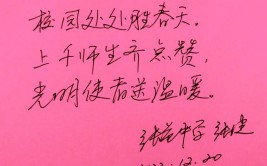 校园处处胜春天。
上千师生齐点赞，
光明使者送温暖。
中学